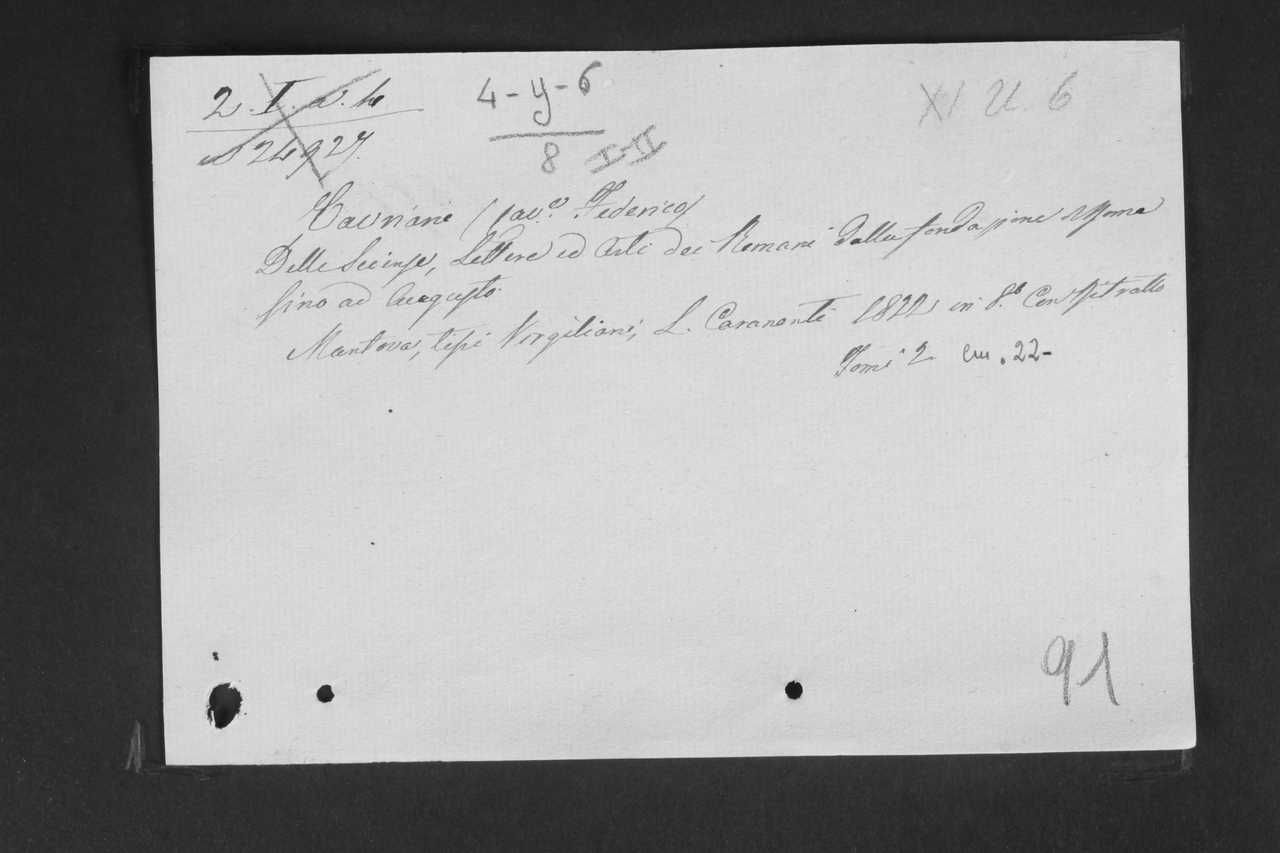 2. I. a. 4
24927.
4-y-6
8 I-II
XI U. 6
Cavriani (Cav.e Federico)
Delle Scienze, Lettere ed Arti dei Romani dalla fondazione di Roma
sino ad Augusto
Mantova, tipi Virgiliani, L. Caranenti 1822 in 8.o Con Ritratto
Tomi 2 cm. 22-
91